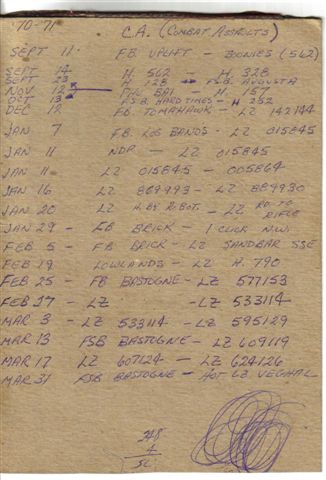 '70-71
C.A. (COMBAT ASSAULTS)
SEPT 11 F.B. UPLIFT - BOONIES (562)
SEPT 14 H. 562 - H. 328
SEPT 23 H 128 FSB AUGUSTA
NOV 12 PHU BAI - H. 157
OCT 13 F.S.B. HARD TIMES - H 252
DEC 12 FB. TOMAHAWK - LZ 142144
JAN 7 F.B. LOS BANOS - LZ 015845
JAN 11 NDP - LZ 015845
JAN 11 LZ 015845 - 005864
JAN 16 LZ 889993 - LZ 889930
JAN 20 LZ H. BY - LZ RD. TO RIFLE
JAN 29 - FB BRICK - 1 CLICK N.W.
FEB 5 - FB BRICK - LZ SANDBAR SSE
FEB 19 LOWLANDS - LZ H. 790
FEB 25 - FB BASTOGNE - LZ 577153
FEB 27 - LZ - LZ 533114
MAR 3 - LZ 533114 - LZ 595129
MAR 13 FSB BASTOGNE - LZ 609119
MAR 17 LZ 607124 - LZ 624126
MAR 31 FSB BASTOGNE - HOT LZ VEGHAL
248